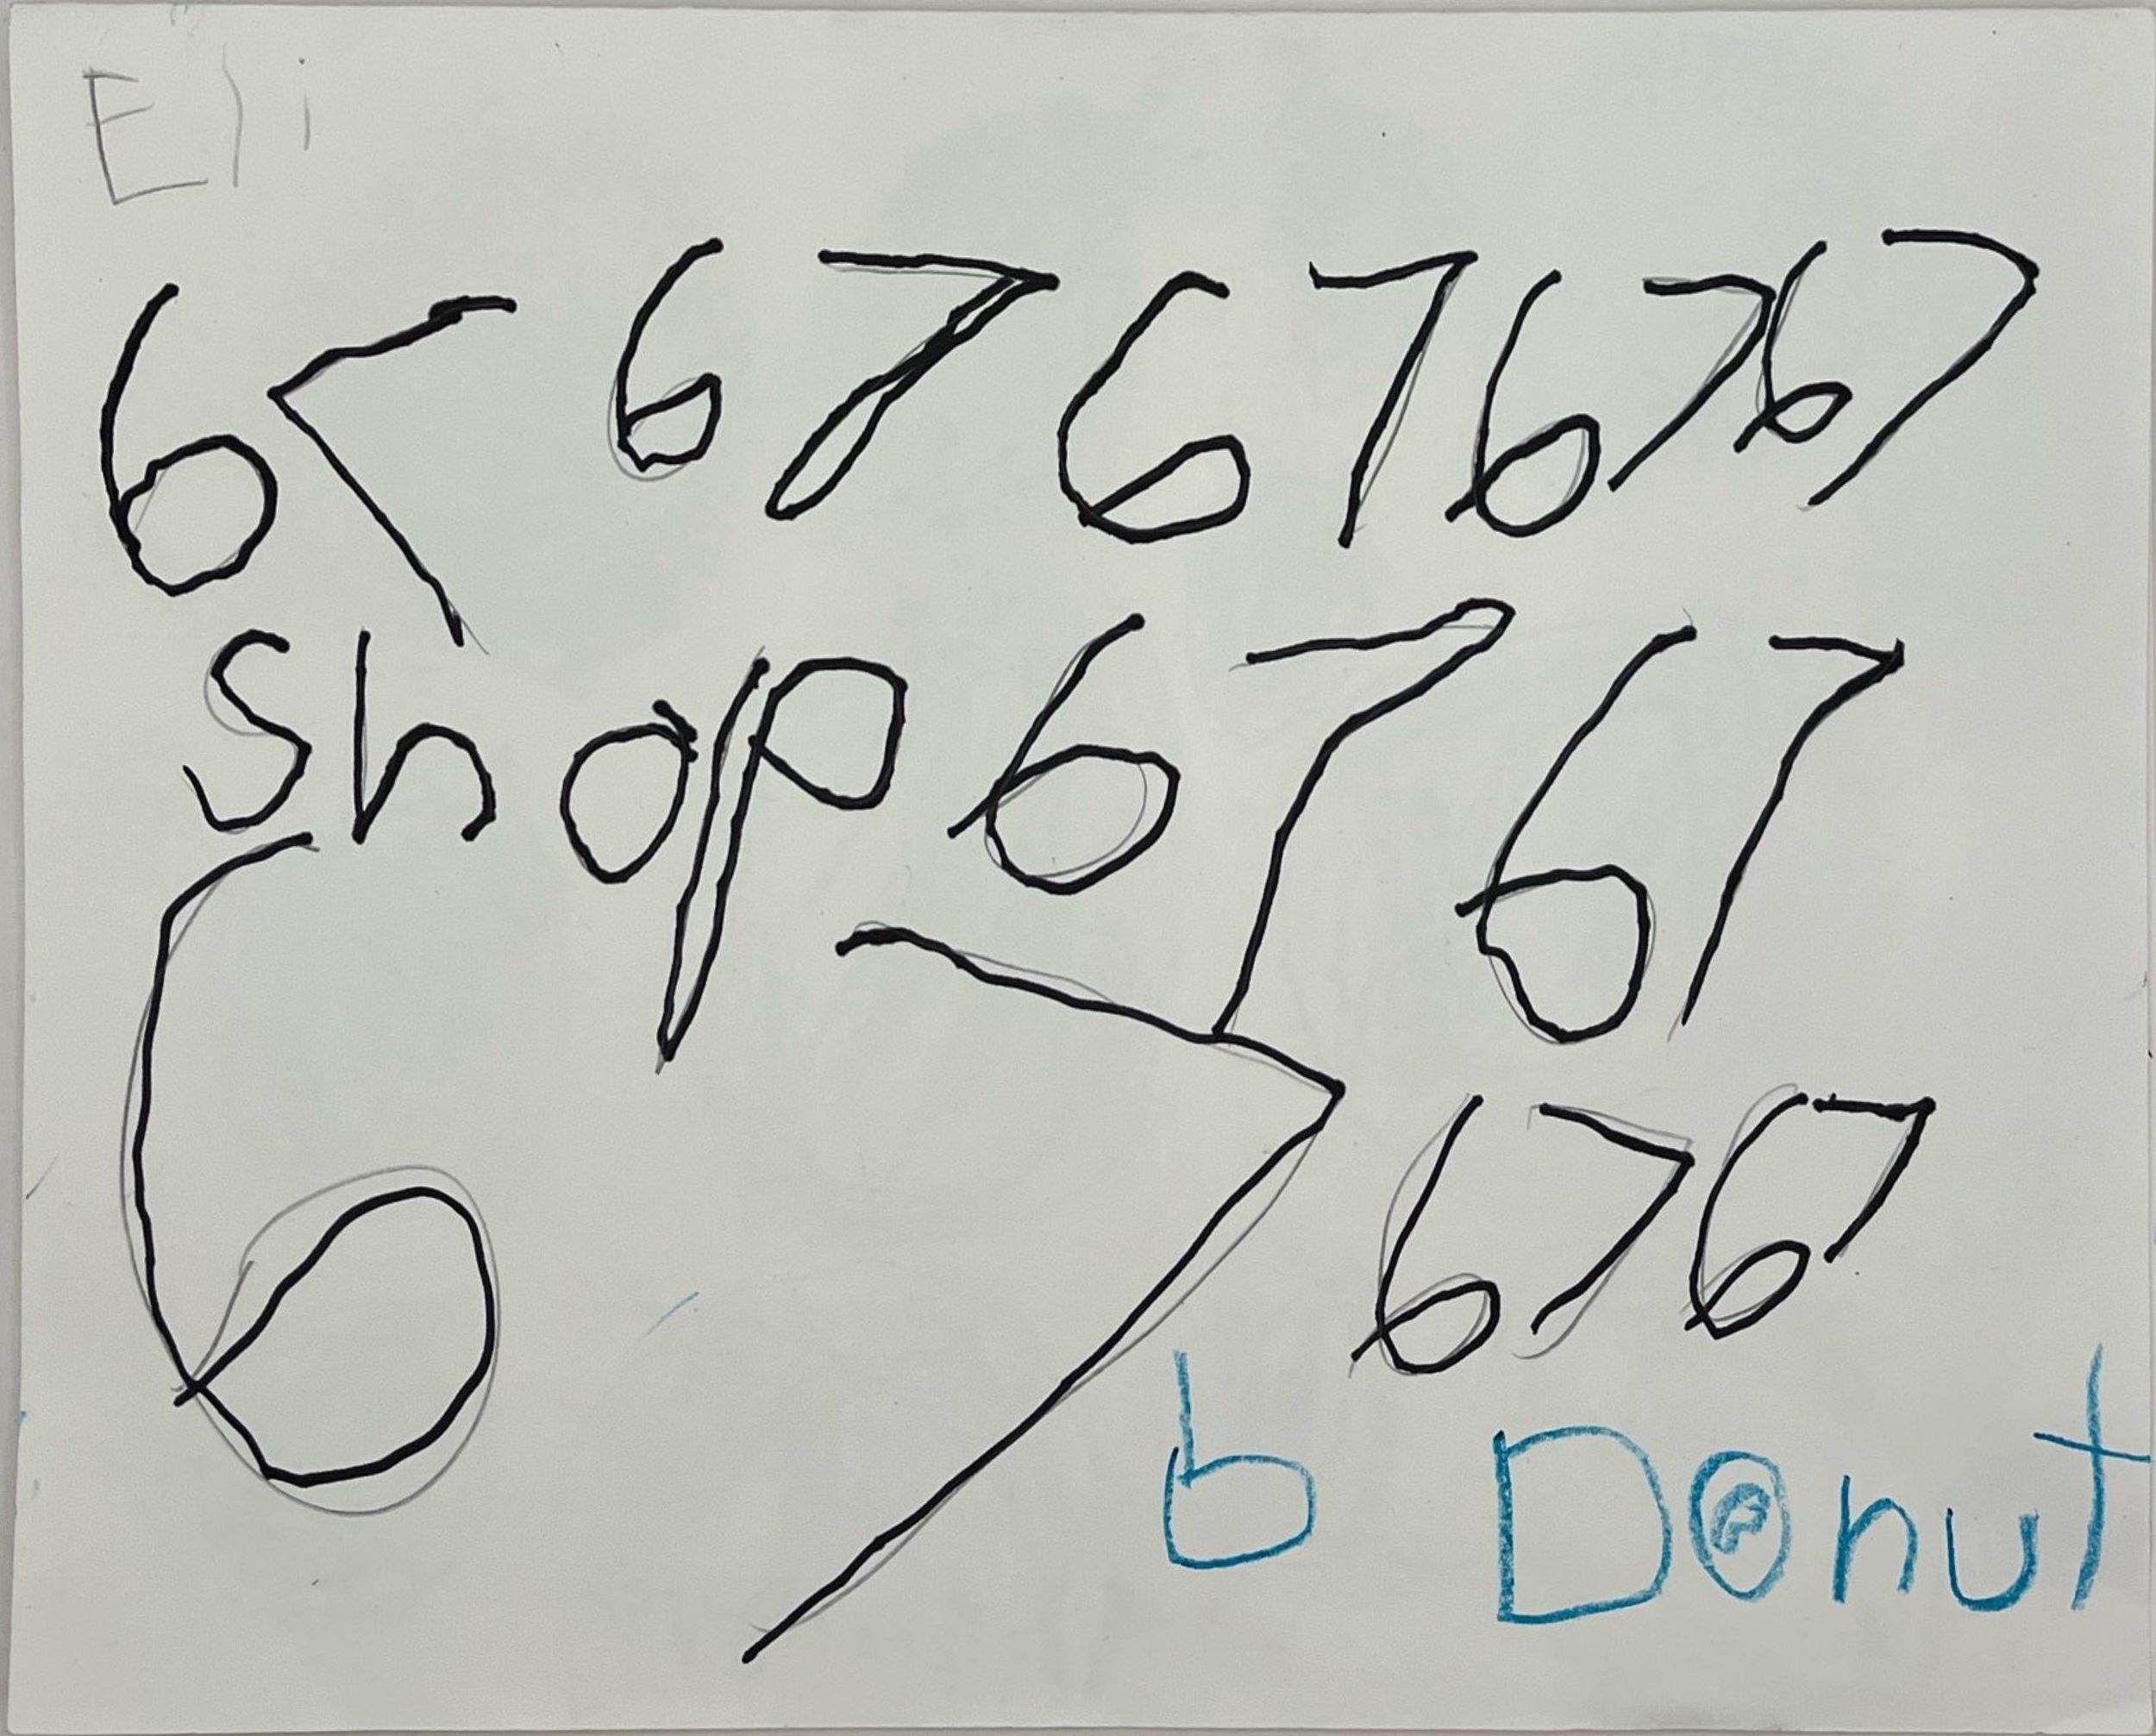 Eli
67 67 67 67 67
Shop 67 67
67 67 67
b Donut